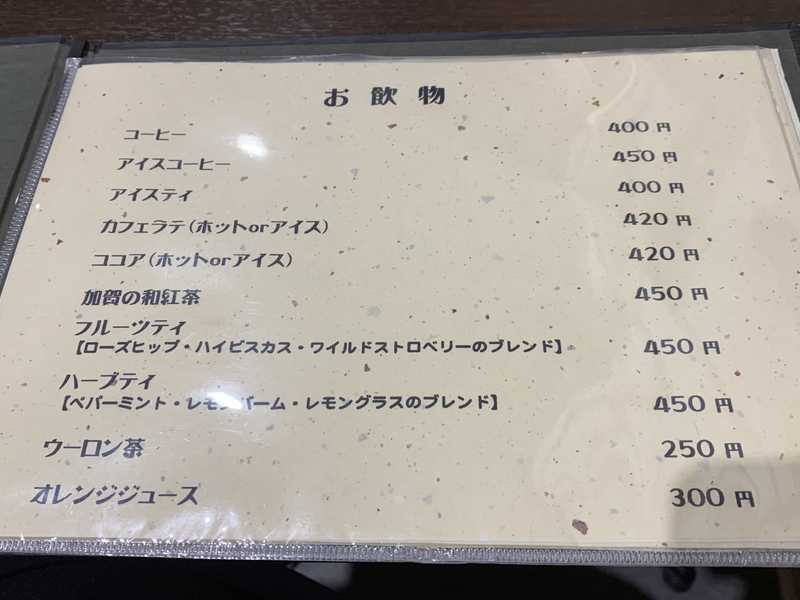 お飲物
コーヒー 400円
アイスコーヒー 450円
アイスティ 400円
カフェラテ(ホットorアイス) 420円
ココア(ホットorアイス) 420円
加賀の和紅茶 450円
フルーツティ
【ローズヒップ・ハイビスカス・ワイルドストロベリーのブレンド】 450円
ハーブティ
【ペパーミント・レモンバーム・レモングラスのブレンド】 450円
ウーロン茶 250円
オレンジジュース 300円